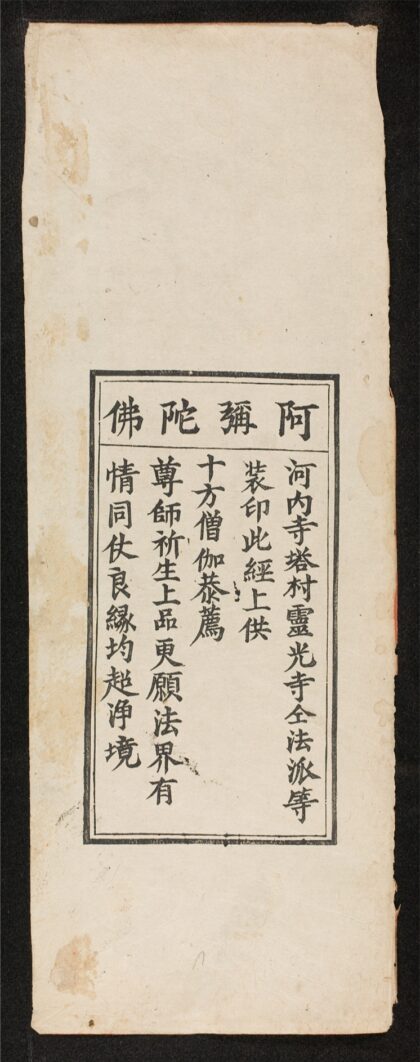 阿彌陀佛
河内寺塔村靈光寺仝法派等
装印此經上供
十方僧伽恭薦
尊師祈生上品更願法界有
情同仗良緣均超淨境